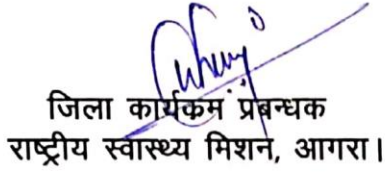 जिला कार्यकम प्रबन्धक
राष्ट्रीय स्वास्थ्य मिशन, आगरा।